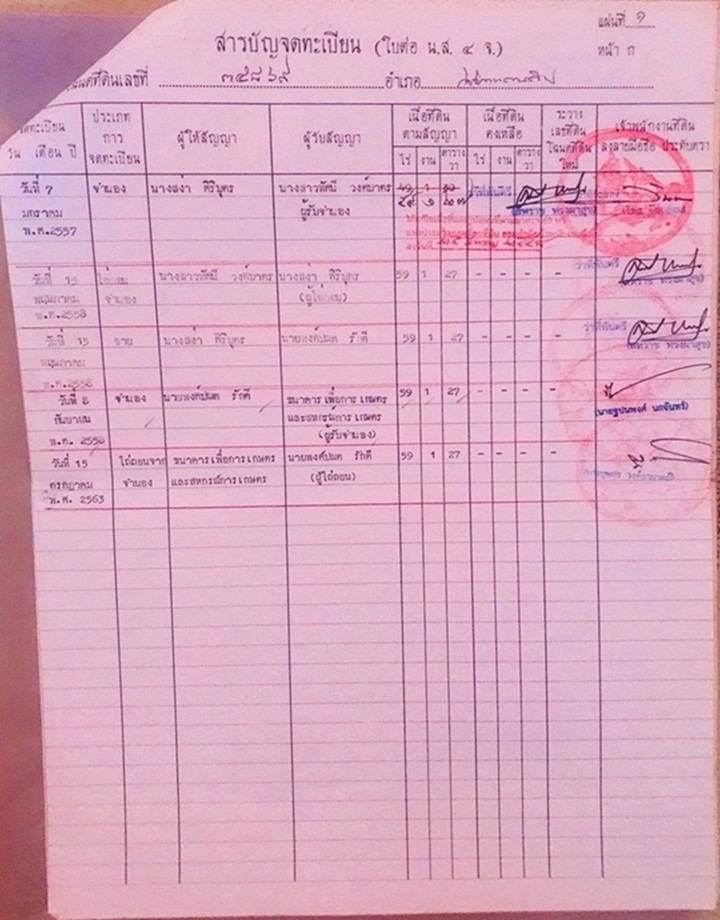 แผ่นที่ ๑
สารบัญจดทะเบียน (ใบต่อ น.ส. ๔ จ.)
หน้า ก
ที่ดินเลขที่ ๓๕๘๖๙ อำเภอ
จดทะเบียน ประเภท ผู้ให้สัญญา ผู้รับสัญญา เนื้อที่ดิน เนื้อที่ดิน ระวาง เจ้าพนักงานที่ดิน
วัน เดือน ปี การ ตามสัญญา คงเหลือ เลขที่ดิน ลงลายมือชื่อ ประทับตรา
จดทะเบียน ไร่ งาน ตารางวา ไร่ งาน ตารางวา โฉนดที่ดิน
ใหม่
วันที่ 7 จำนอง นางสง่า ศิริบุตร นางสาวทัศมี วงค์มาตร 1
มกราคม ผู้รับจำนอง
พ.ศ.2557
วันที่ 15 ไถ่ถอน นางสาวทัศมี วงค์มาตร นางสง่า ศิริบุตร 59 1 27 - - - -
พฤษภาคม จำนอง (ผู้ไถ่ถอน)
พ.ศ.2558
วันที่ 15 ขาย นางสง่า ศิริบุตร รักดี 59 1 27 - - - -
พฤษภาคม
พ.ศ.2558
วันที่ 8 จำนอง รักดี ธนาคารเพื่อการเกษตร 59 1 27 - - - -
กันยายน และสหกรณ์การเกษตร
พ.ศ. 2558 (ผู้รับจำนอง)
วันที่ 15 ไถ่ถอนจาก ธนาคารเพื่อการเกษตร รักดี 59 1 27 - - - -
กรกฎาคม จำนอง และสหกรณ์การเกษตร (ผู้ไถ่ถอน)
พ.ศ. 2563